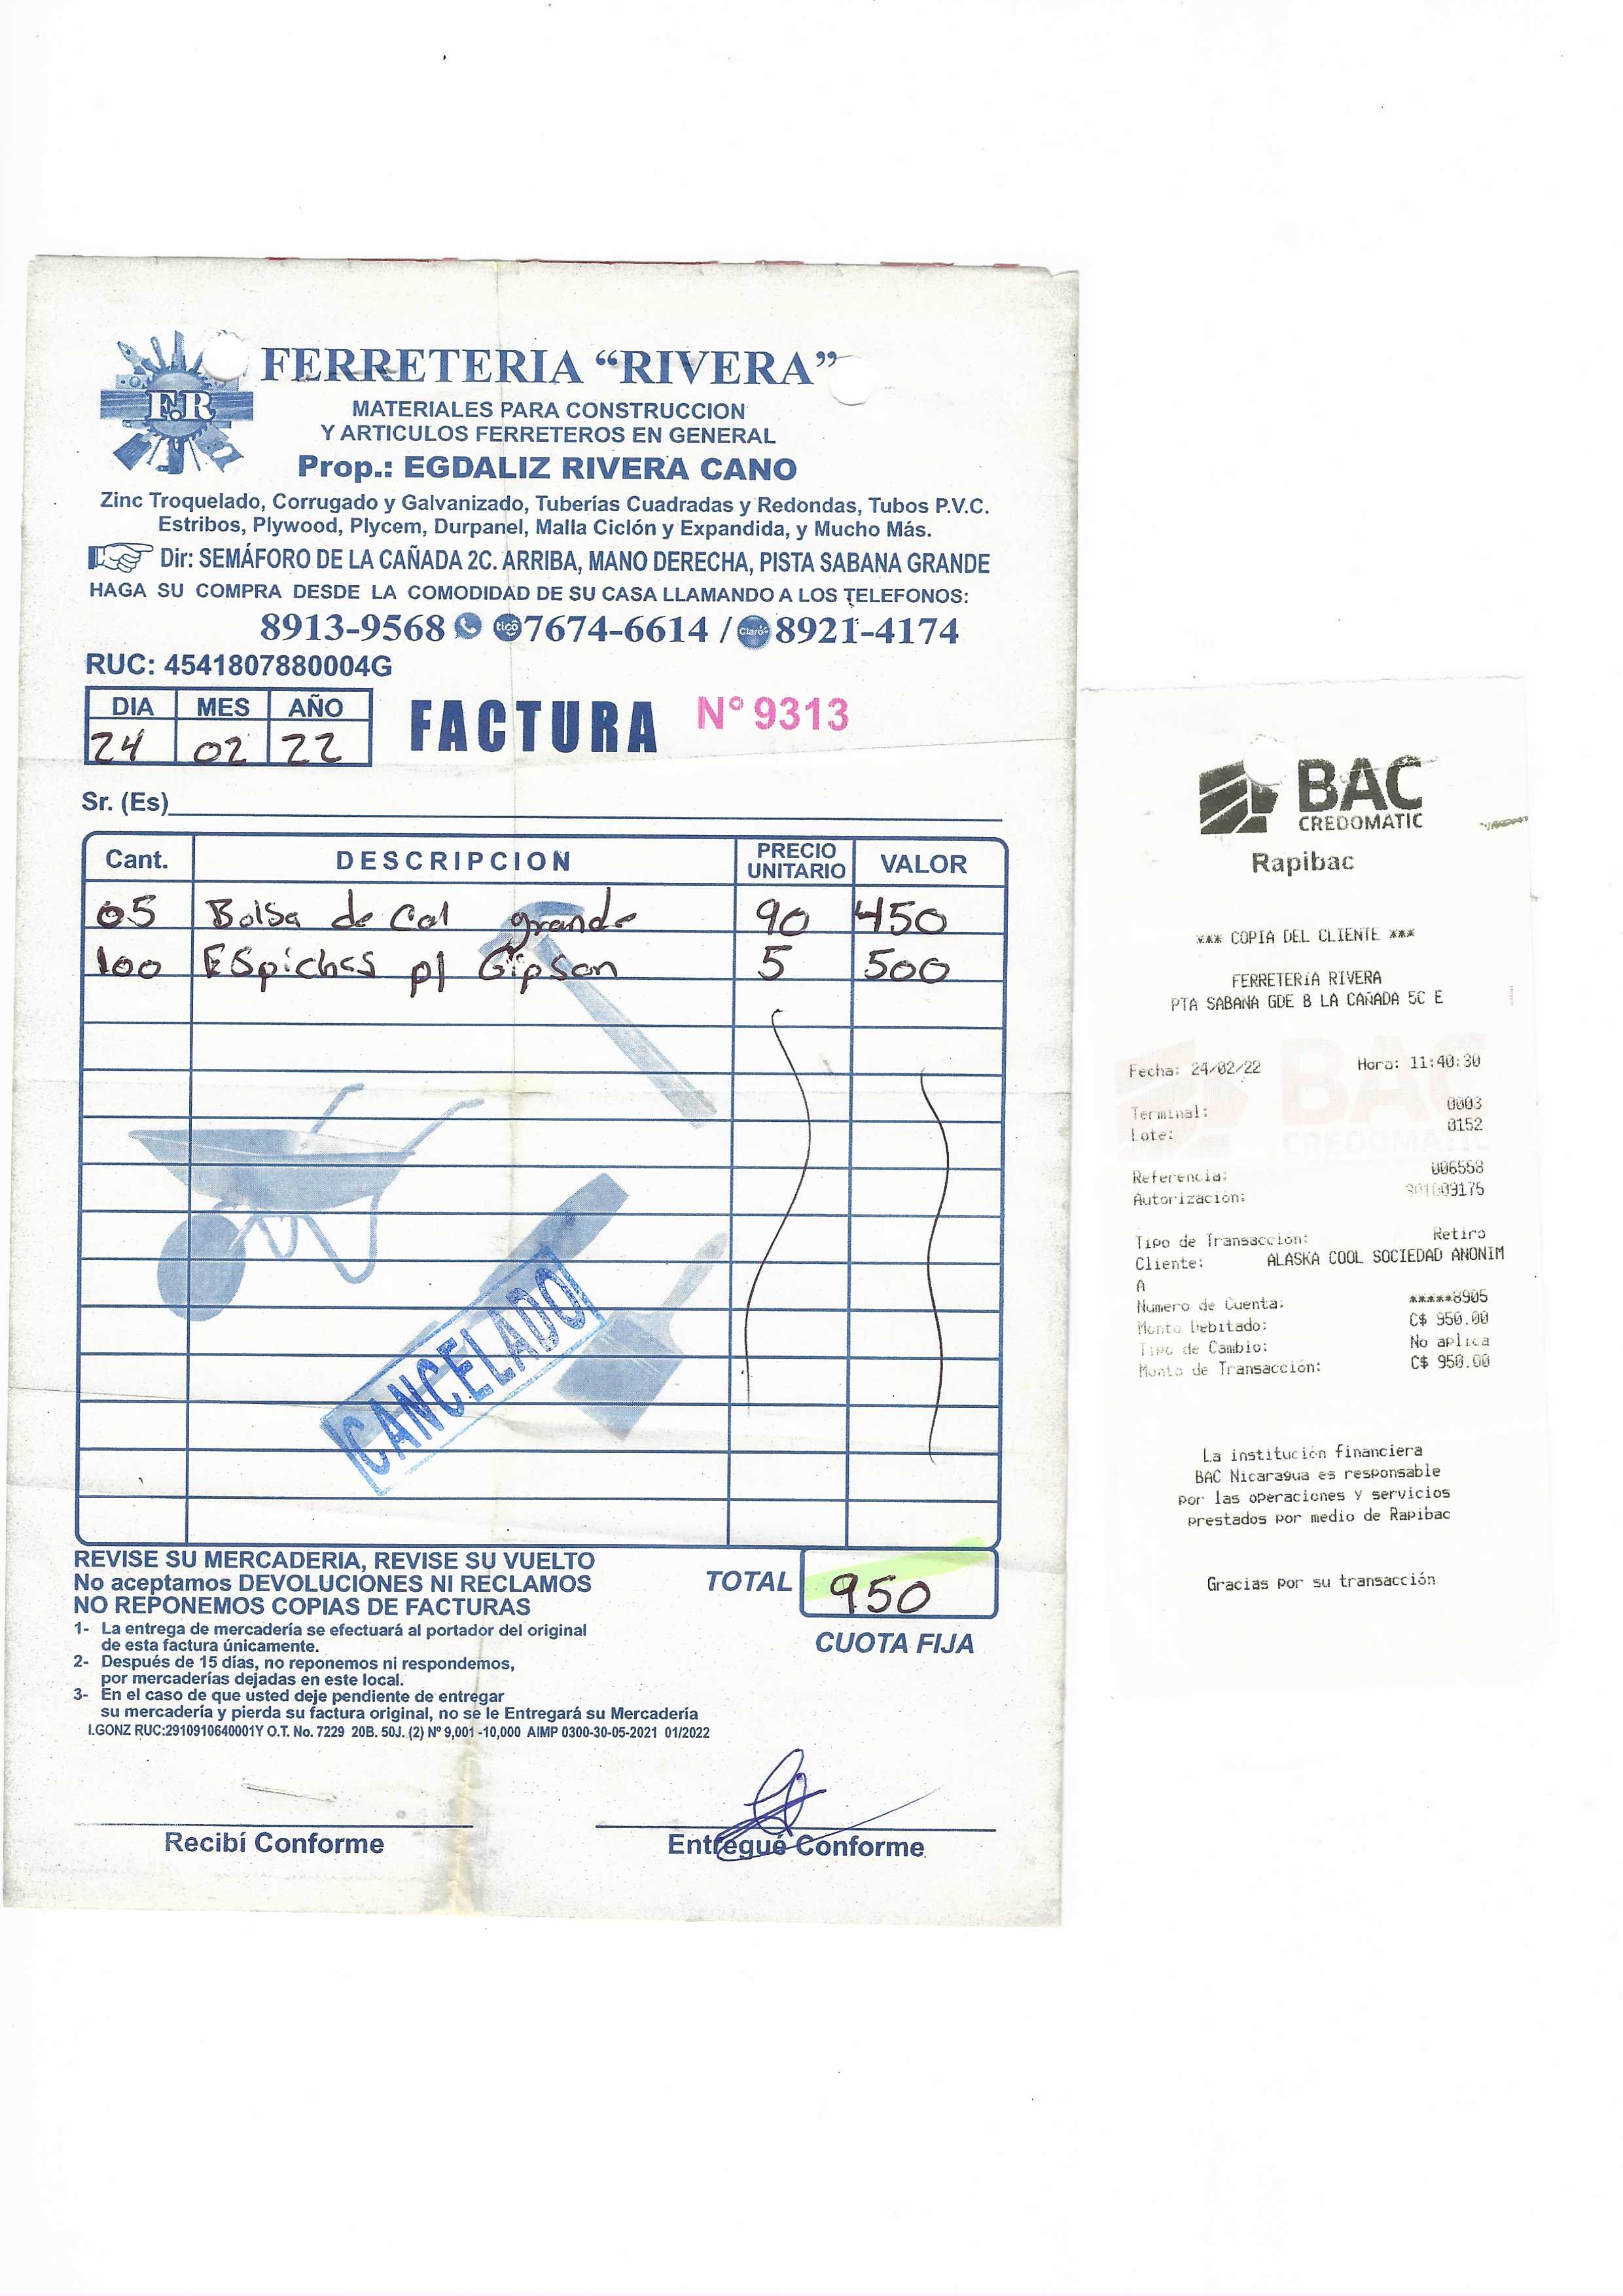 F.R
FERRETERIA “RIVERA”
MATERIALES PARA CONSTRUCCION
Y ARTICULOS FERRETEROS EN GENERAL
Prop.: EGDALIZ RIVERA CANO
Zinc Troquelado, Corrugado y Galvanizado, Tuberías Cuadradas y Redondas, Tubos P.V.C.
Estribos, Plywood, Plycem, Durpanel, Malla Ciclón y Expandida, y Mucho Más.
Dir: SEMÁFORO DE LA CAÑADA 2C. ARRIBA, MANO DERECHA, PISTA SABANA GRANDE
HAGA SU COMPRA DESDE LA COMODIDAD DE SU CASA LLAMANDO A LOS TELEFONOS:
8913-9568 tigo 7674-6614 / Claro 8921-4174
RUC: 4541807880004G
DIA MES AÑO
24 02 22
FACTURA N° 9313
Sr. (Es)
Cant. DESCRIPCION PRECIO UNITARIO VALOR
05 Bolsa de Cal grande 90 450
100 ESpiches p/ Gipson 5 500
CANCELADO
REVISE SU MERCADERIA, REVISE SU VUELTO
No aceptamos DEVOLUCIONES NI RECLAMOS
NO REPONEMOS COPIAS DE FACTURAS
TOTAL 950
CUOTA FIJA
1- La entrega de mercadería se efectuará al portador del original
de esta factura únicamente.
2- Después de 15 días, no reponemos ni respondemos,
por mercaderías dejadas en este local.
3- En el caso de que usted deje pendiente de entregar
su mercadería y pierda su factura original, no se le Entregará su Mercadería
I.GONZ RUC:2910910640001Y O.T. No. 7229 20B. 50J. (2) Nº 9,001 -10,000 AIMP 0300-30-05-2021 01/2022
Recibí Conforme
Entregué Conforme
BAC
CREDOMATIC
Rapibac
*** COPIA DEL CLIENTE ***
FERRETERíA RIVERA
PTA SABANA GDE B LA CAÑADA 5C E
BAC
CREDOMATIC
Fecha: 24/02/22 Hora: 11:40:30
Terminal: 0003
Lote: 0152
Referencia: 006558
Autorización:
Tipo de Transacción: Retiro
Cliente: ALASKA COOL SOCIEDAD ANONIM
A
Numero de Cuenta: *****8905
Monto Debitado: C$ 950.00
Tipo de Cambio: No aplica
Monto de Transacción: C$ 950.00
La institución financiera
BAC Nicaragua es responsable
por las operaciones y servicios
prestados por medio de Rapibac
Gracias por su transacción